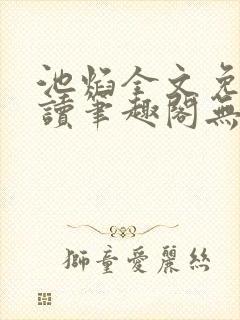 池焰全文免
讀筆趣閣無
獅童愛麗絲